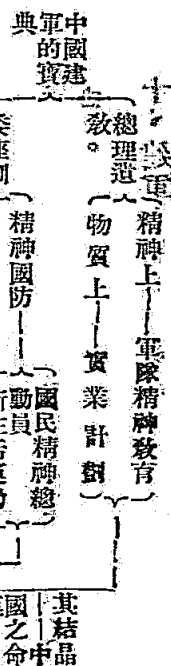 中國建
軍的寶
典
總理遺
教。
精神上——軍隊精神教育
物質上——實業計劃
精神國防
國民精神總
動員
其結晶
——中
國之命